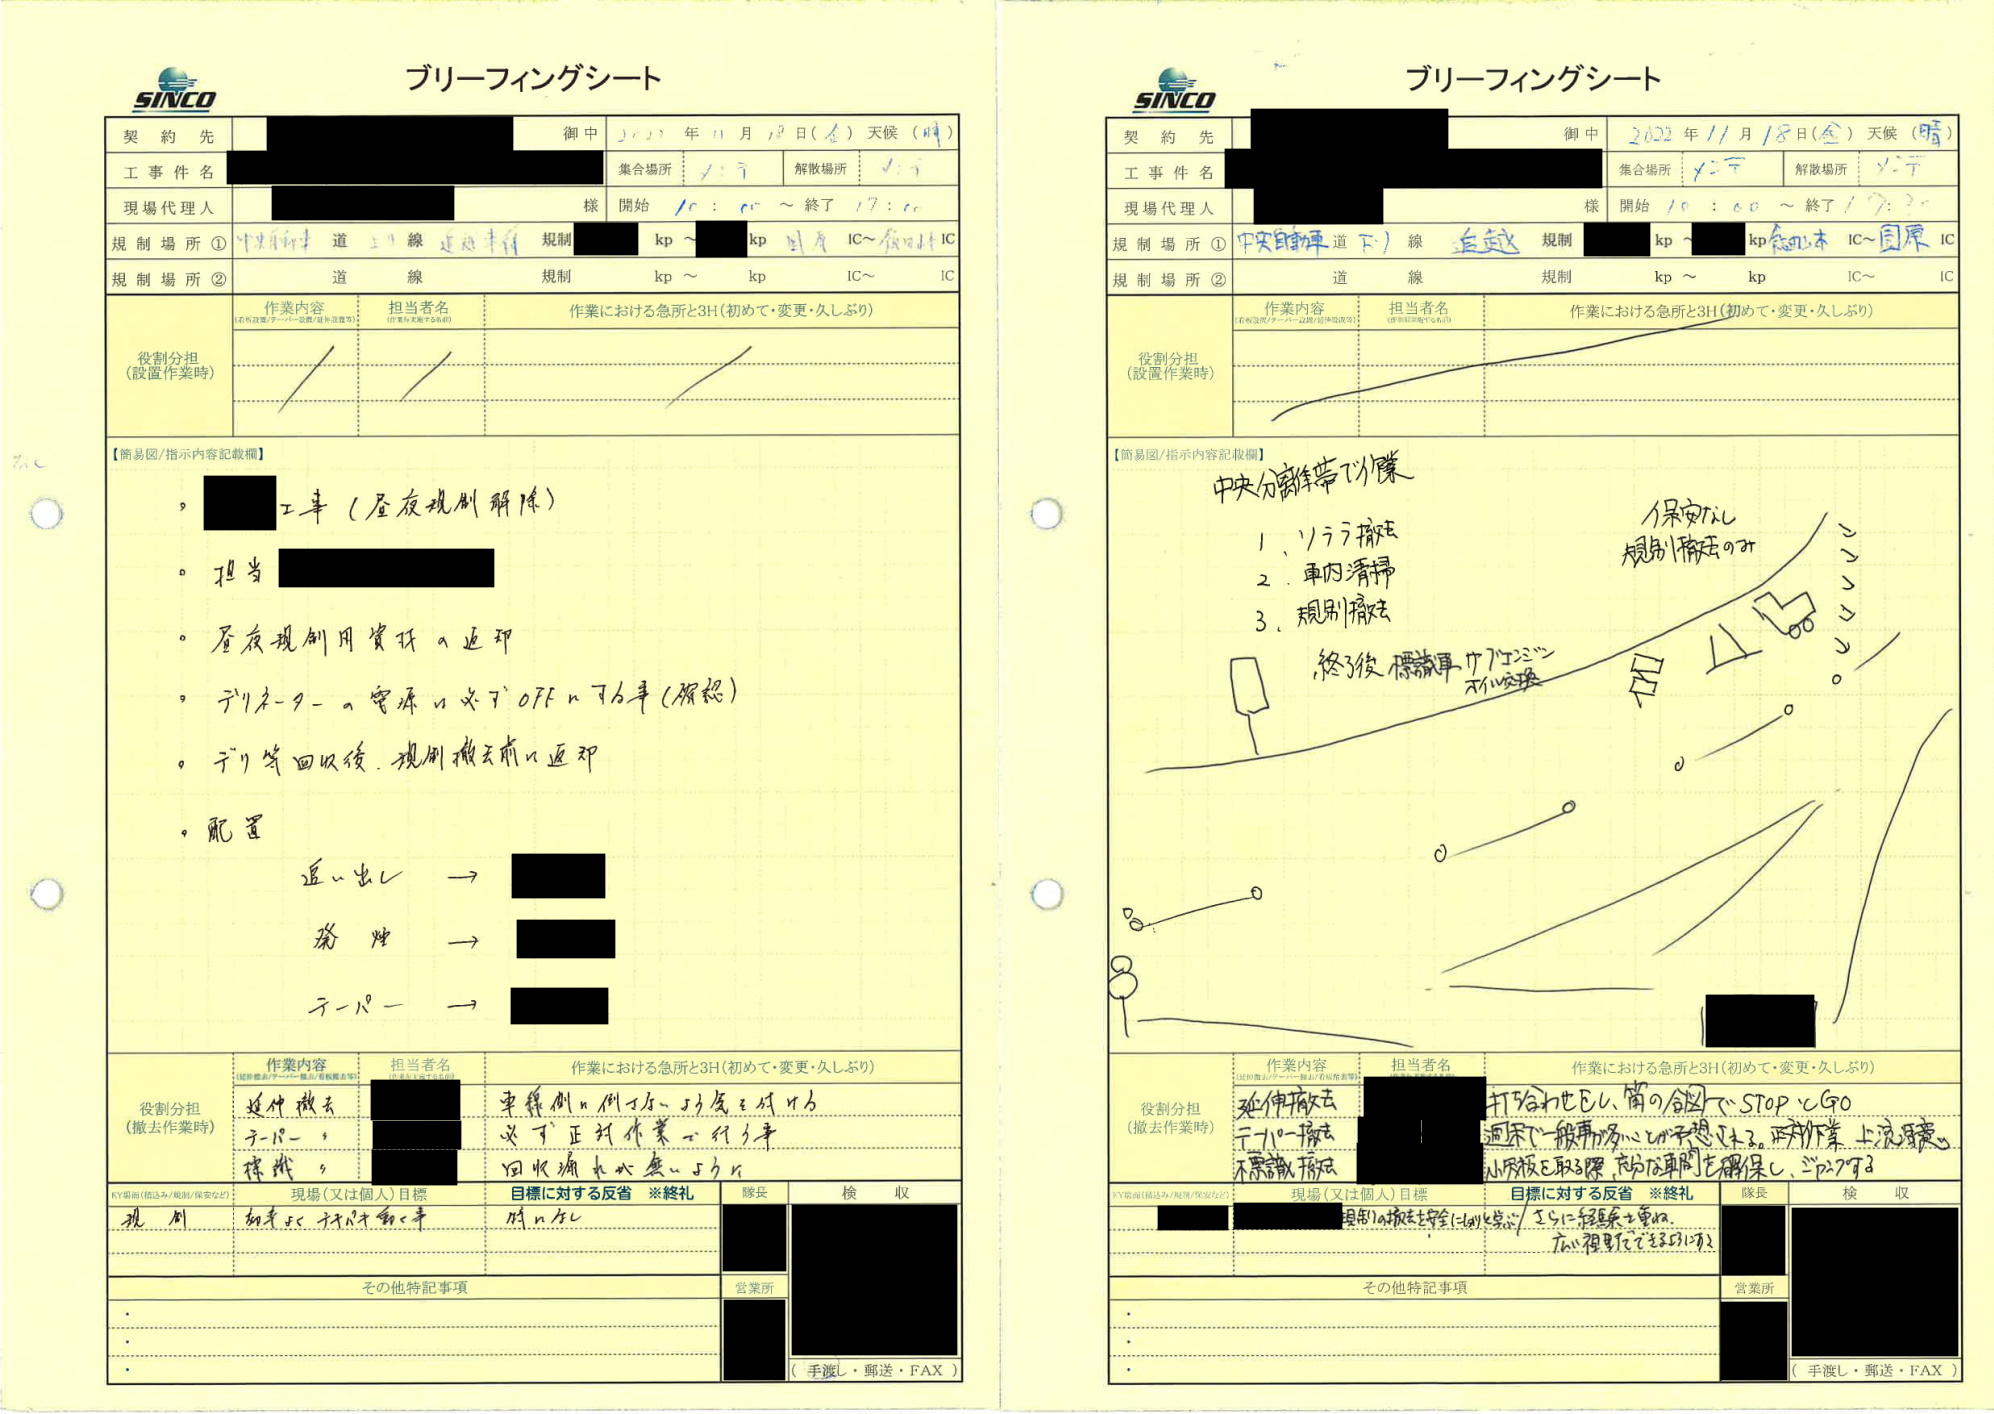 SINCO
ブリーフィングシート
契約先 御中 年 11 月 18 日(金) 天候(晴)
工事件名 集合場所 メンテ 解散場所 メンテ
現場代理人 様 開始 10:00 ～ 終了 17:00
規制場所① 中央自動車 道 上り 線 追越車線 規制 kp ～ kp 園原 IC～ 飯田山本 IC
規制場所② 道 線 規制 kp ～ kp IC～ IC
役割分担
(設置作業時)
作業内容 担当者名 作業における急所と3H(初めて・変更・久しぶり)
(看板設置/テーパー設置/延伸設置等) (作業を実施する名前)
【簡易図/指示内容記載欄】
・ 工事(昼夜規制解除)
・ 担当
・ 昼夜規制用資材の返却
・ デリネーターの電源は必ずOFFにする事(確認)
・ デリ等回収後、規制撤去前に返却
・ 配置
追い出し →
発煙 →
テーパー →
役割分担
(撤去作業時)
作業内容 担当者名 作業における急所と3H(初めて・変更・久しぶり)
(延伸撤去/テーパー撤去/看板撤去等)
延伸撤去 車線側に倒さないよう気を付ける
テーパー 〃 必ず正対作業で行う事
標識 〃 回収漏れが無いように
KY場面(積込み/規制/保安など) 現場(又は個人)目標 目標に対する反省 ※終礼 隊長 検収
規制 効率よくテキパキ動く事 特になし
その他特記事項 営業所
・
・
・
(手渡し・郵送・FAX)
SINCO
ブリーフィングシート
契約先 御中 2022 年 11 月 18 日(金) 天候(晴)
工事件名 集合場所 メンテ 解散場所 メンテ
現場代理人 様 開始 10:00 ～ 終了
規制場所① 中央自動車 道 下り 線 追越 規制 kp ～ kp 飯田山本 IC～ 園原 IC
規制場所② 道 線 規制 kp ～ kp IC～ IC
役割分担
(設置作業時)
作業内容 担当者名 作業における急所と3H(初めて・変更・久しぶり)
(看板設置/テーパー設置/延伸設置等) (作業を実施する名前)
【簡易図/指示内容記載欄】
中央分離帯で作業
1、ソララ撤去
2、車内清掃
3、規制撤去
保安なし
規制撤去のみ
終了後 標識車 サブエンジン
オイル交換
役割分担
(撤去作業時)
作業内容 担当者名 作業における急所と3H(初めて・変更・久しぶり)
(延伸撤去/テーパー撤去/看板撤去等)
延伸撤去 打ち合わせをし、笛の合図でSTOPとGO
テーパー撤去 週末で一般車が多いことが予想される。正対作業、上流注意
標識撤去 小矢板を取る際、充分な車間を確保し、
KY場面(積込み/規制/保安など) 現場(又は個人)目標 目標に対する反省 ※終礼 隊長 検収
規制の撤去を安全にしっかりと学ぶ さらに経験を重ね、
広い視野でできるようにする
その他特記事項 営業所
・
・
・
(手渡し・郵送・FAX)